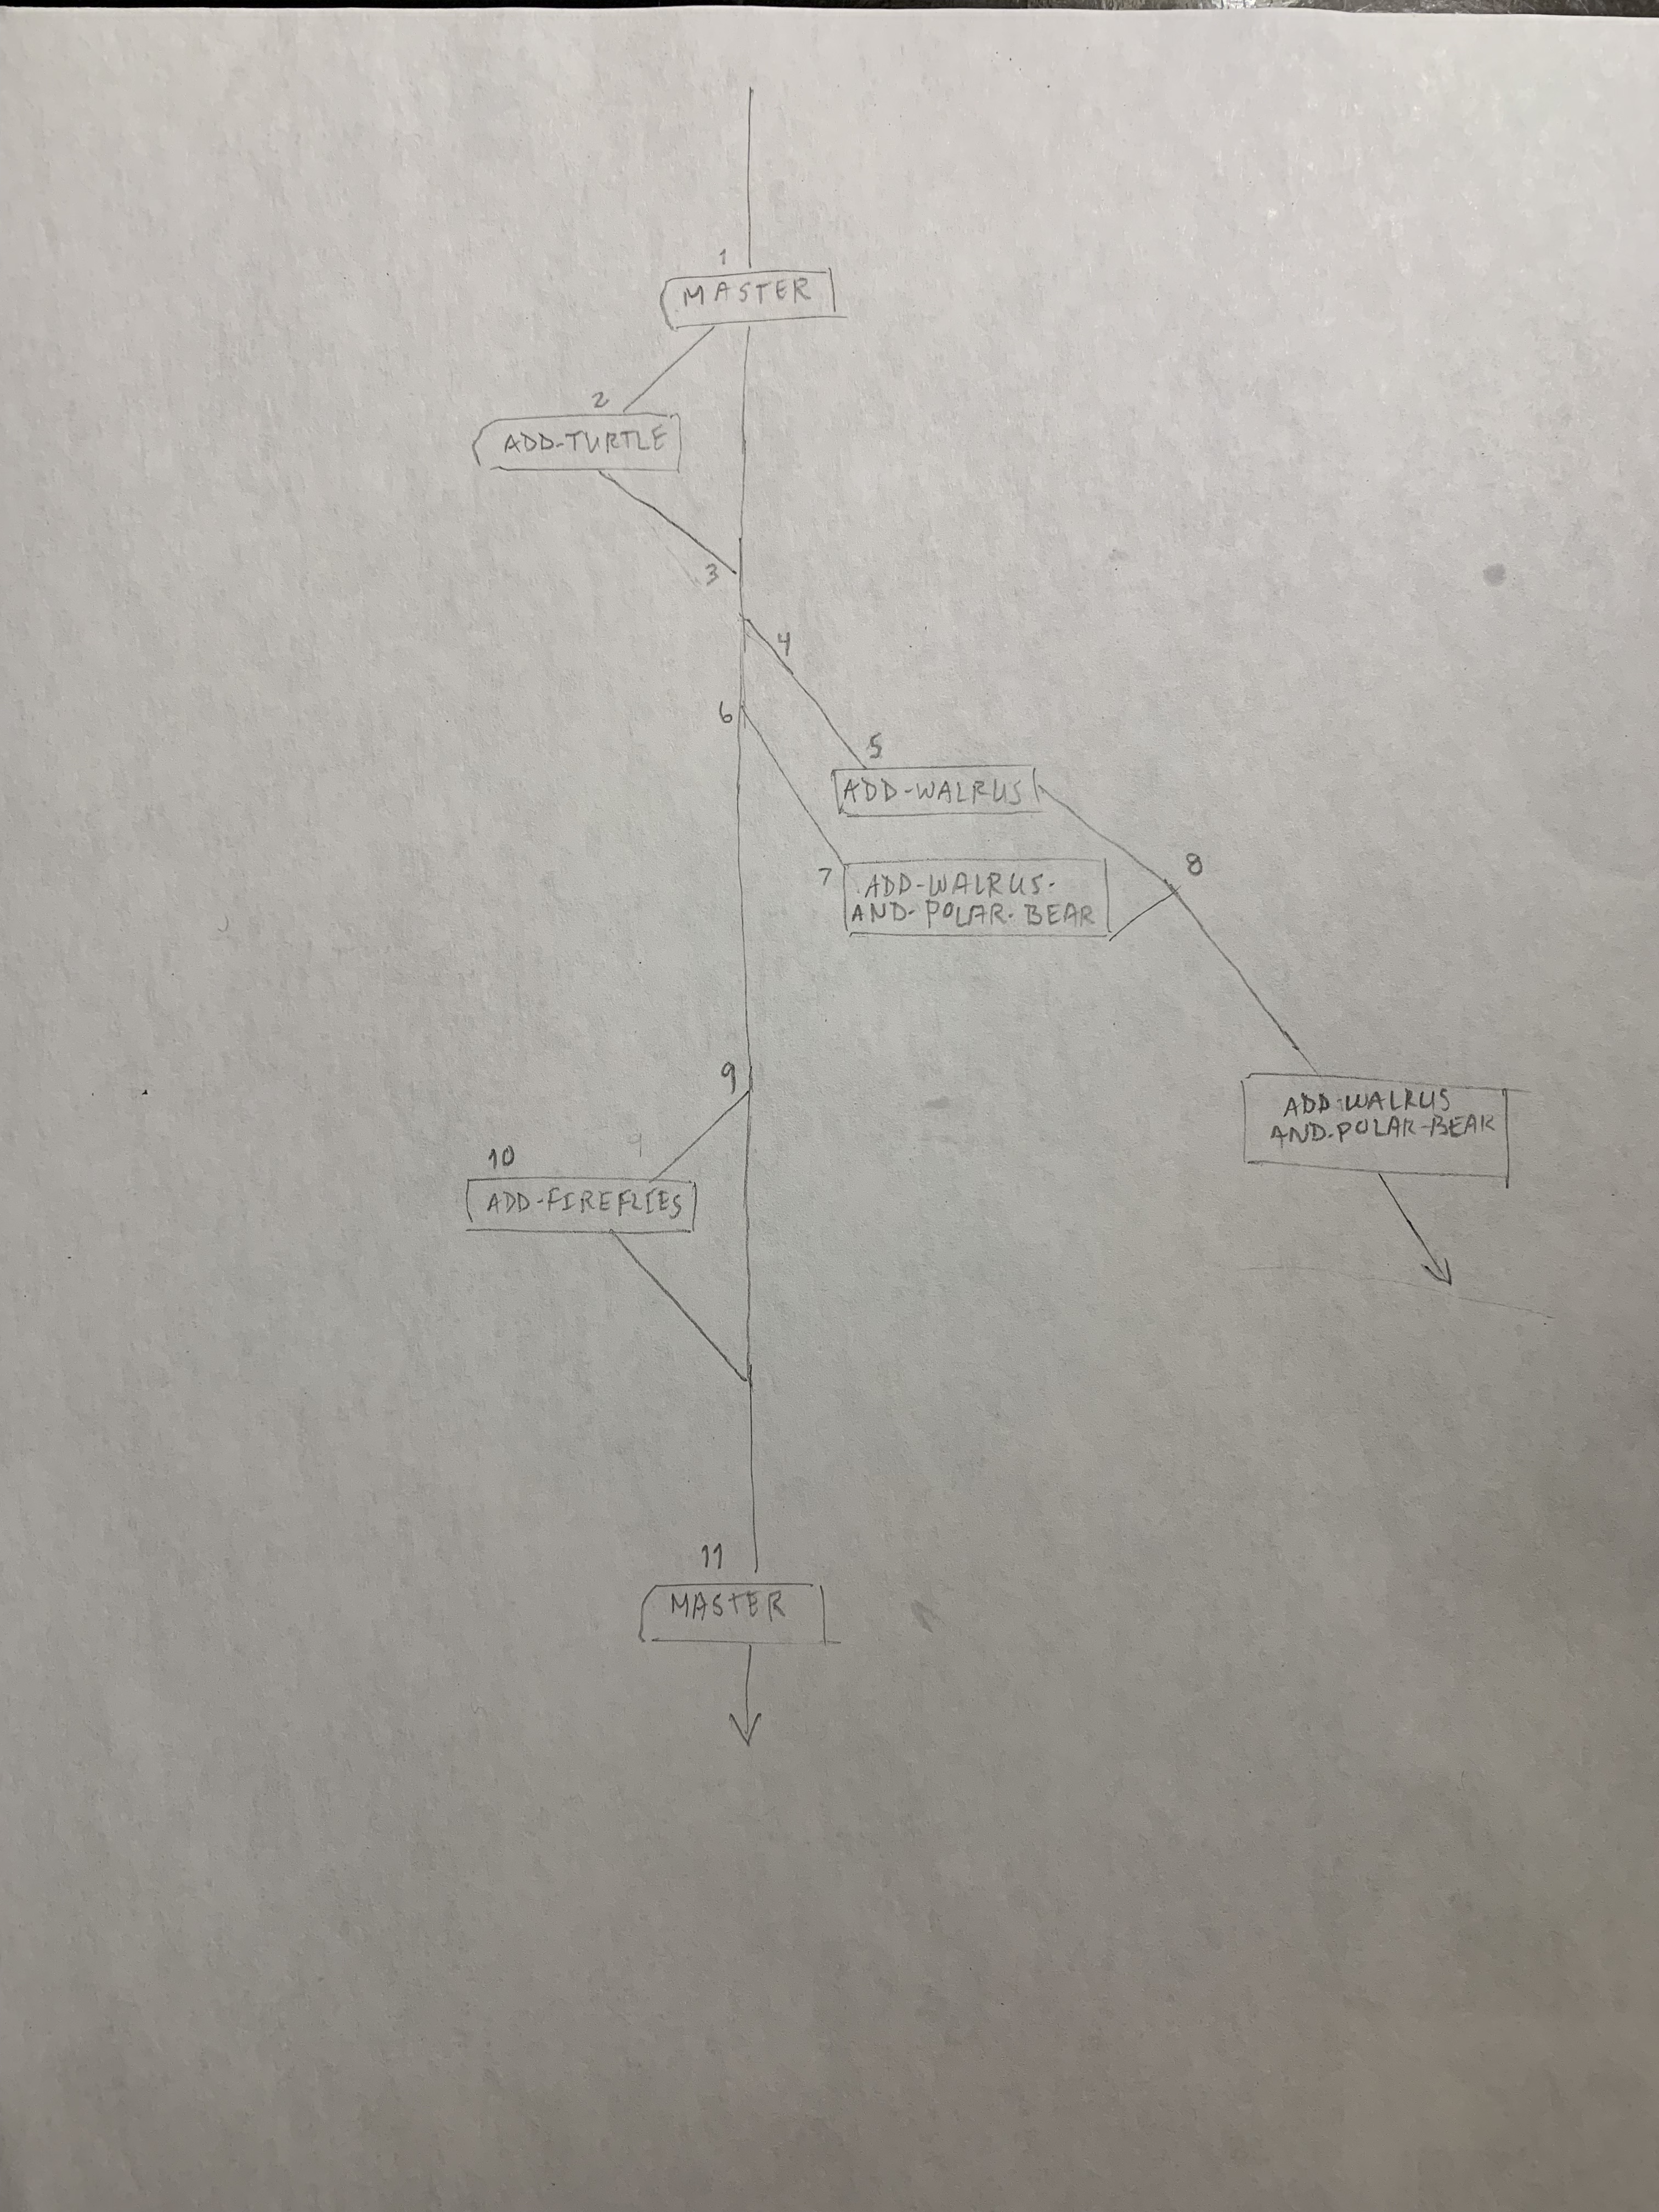 1
MASTER
2
ADD-TURTLE
3
4
6
5
ADD-WALRUS
8
7
ADD-WALRUS-
AND-POLAR-BEAR
9
ADD-WALRUS
AND-POLAR-BEAR
9
10
ADD-FIREFLIES
11
MASTER